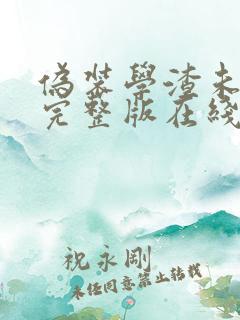 偽裝學渣未
完整版在綫
祝永剛
未經同意禁止轉載